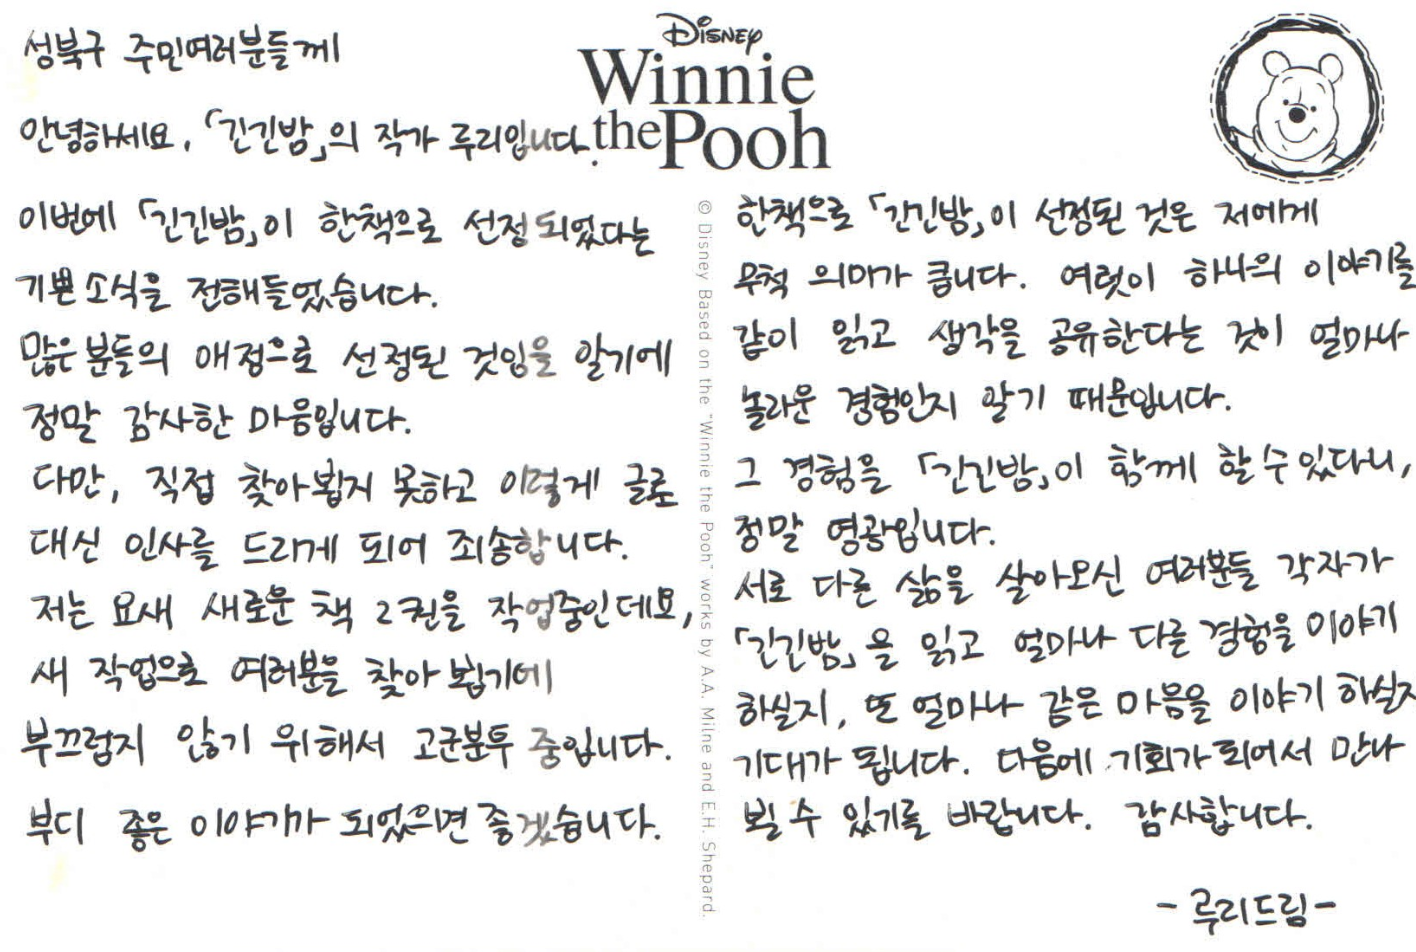 성북구 주민여러분들께
DISNEY
Winnie
the Pooh
안녕하세요, 「긴긴밤」의 작가 루리입니다.
이번에 「긴긴밤」이 한책으로 선정되었다는
기쁜 소식을 전해들었습니다.
많은 분들의 애정으로 선정된 것임을 알기에
정말 감사한 마음입니다.
다만, 직접 찾아뵙지 못하고 이렇게 글로
대신 인사를 드리게 되어 죄송합니다.
저는 요새 새로운 책 2권을 작업중인데요,
새 작업으로 여러분을 찾아 뵙기에
부끄럽지 않기 위해서 고군분투 중입니다.
부디 좋은 이야기가 되었으면 좋겠습니다.
© Disney Based on the "Winnie the Pooh" works by A.A. Milne and E.H. Shepard.
한책으로 「긴긴밤」이 선정된 것은 저에게
무척 의미가 큽니다. 여럿이 하나의 이야기를
같이 읽고 생각을 공유한다는 것이 얼마나
놀라운 경험인지 알기 때문입니다.
그 경험을 「긴긴밤」이 함께 할 수 있다니,
정말 영광입니다.
서로 다른 삶을 살아오신 여러분들 각자가
「긴긴밤」을 읽고 얼마나 다른 경험을 이야기
하실지, 또 얼마나 같은 마음을 이야기 하실지
기대가 됩니다. 다음에 기회가 되어서 만나
뵐 수 있기를 바랍니다. 감사합니다.
- 루리드림 -